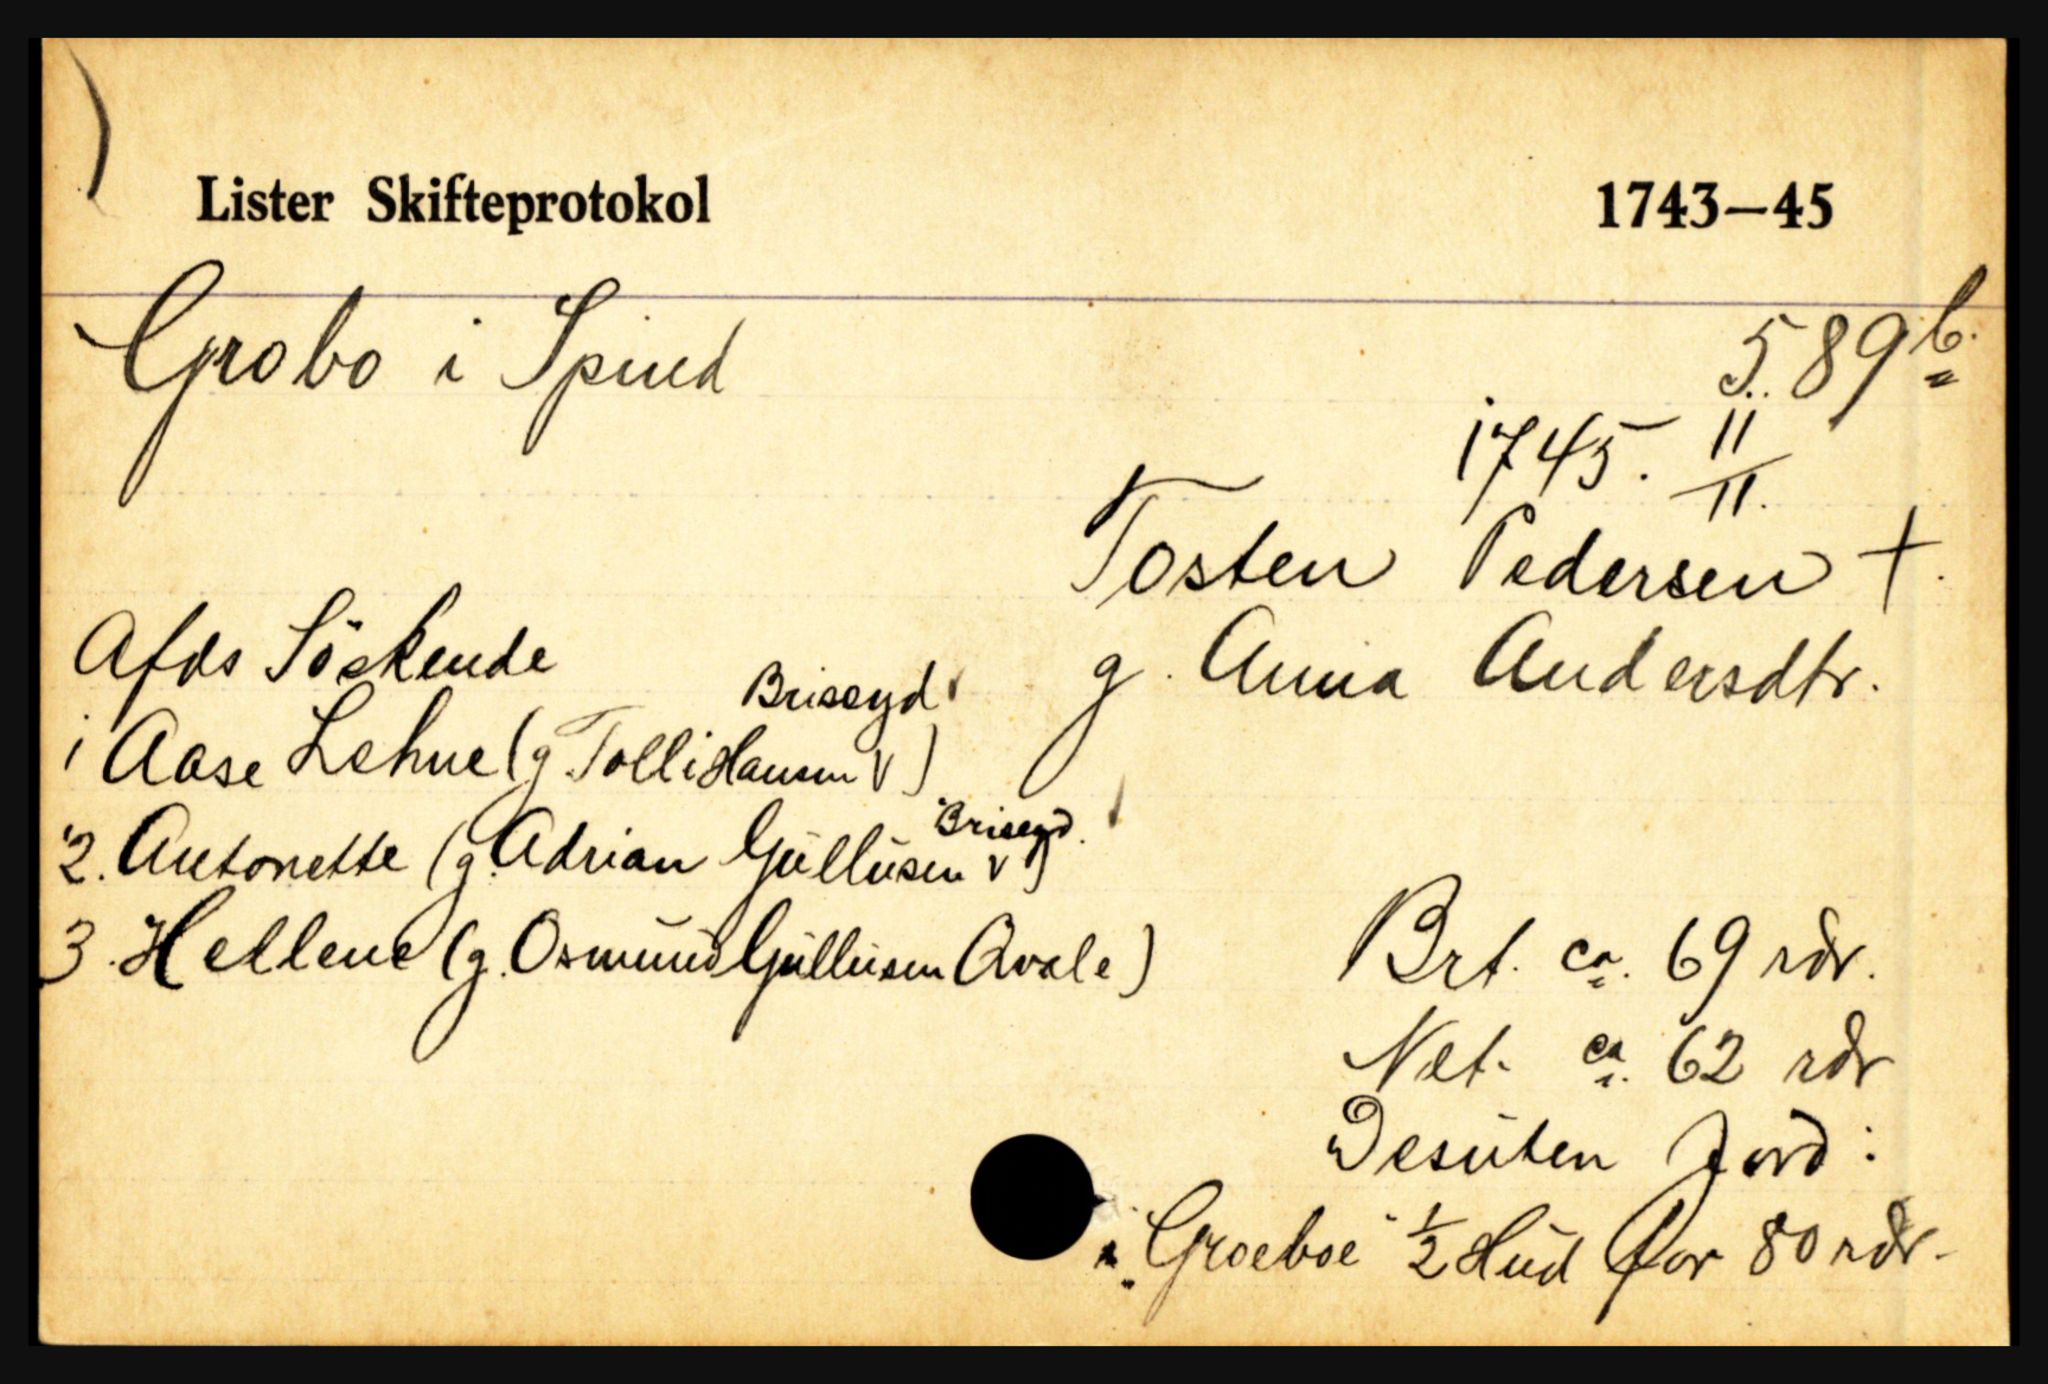 Lister Skifteprotokol 1743—45
Grobo i Spind
589 b.
1745. 11/11.
Tosten Pedersen +.
g. Anna Andersdtr.
Afds Söskende
Briseyd
1 Aase Lehne (g. Tolli Hansen V)
Briseyd.
2. Antonette (g. Adrian Gullüsen V)
3. Hellene (g. Osmünd Gullüsen Qvale)
Brt. ca. 69 rdr.
Net. ca. 62 rdr
Desüten Jord:
i "Groeboe" 1/2 Hüd for 80 rdr.